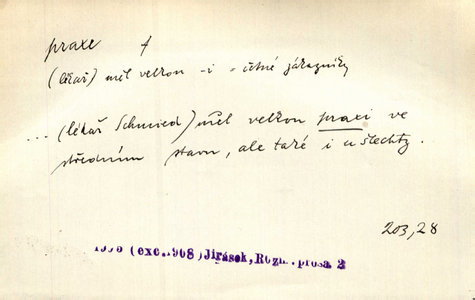 praxe f
(lékař) měl velkou -i = četné zákazníky
... (lékař Schmied) měl velkou praxi ve
středním stavu, ale také i u šlechty.
203,28
(exc. 1908) Jirásek, Rozm. prosa 2